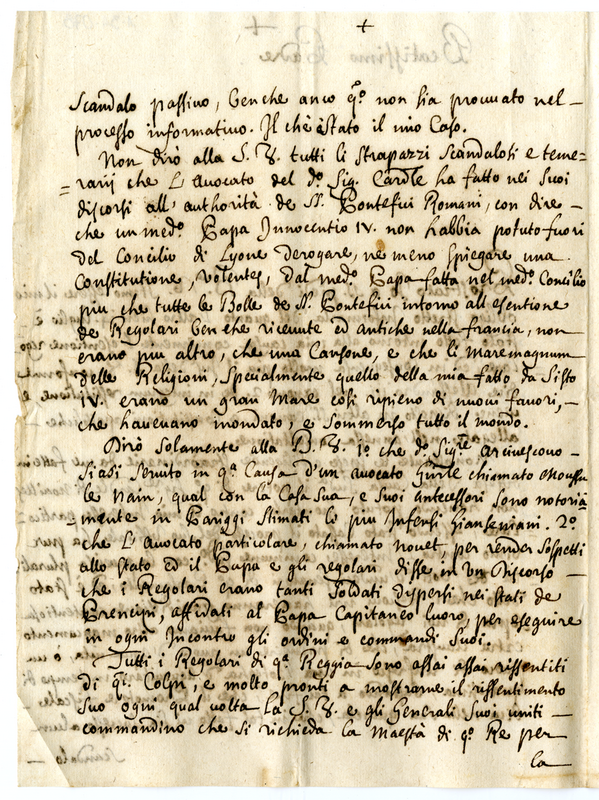 +
scandalo passivo, benche anco q.º non sia provvato nel
processo informativo. Il che è stato il mio Caso.
Non dirò alla S. V. tutti li strapazzi scandalosi e teme=
=rarij che L'avocato del d.º Sig. Cardle ha fatto nei suoi
discorsi all'authorità de SS. Pontefici Romani, con dire
che un med.º Papa Innocentio IV. non habbia potuto fuori
del Concilio di Lyone derogare, ne meno spiegare una
Constitutione, volentes, dal med.º Papa fatta nel med.º Concilio
piu che tutte le Bolle de SS. Pontefici intorno all esentione
de Regolari benche ricevute ed antiche nella francia, non
erano piu altro, che una Canzone, e che li Maremagnum
delle Religioni, Specialmente quello della mia fatto da Sisto
IV. erano un gran Mare così ripieno di nuovi favori,
che havevano inondato, e sommerso tutto il mondo.
Dirò solamente alla B. V. 1º che d.º Sig.re Arcivescovo
siasi servito in q.ª Causa d'un avocato chiamato
le Nain, qual con la Casa Sua, e Suoi antecessori sono notoria
=mente in Pariggi stimati lo piu infensi Gianseniani. 2º
che L'avocato particolare, chiamato Nouet, per render sospetti
allo stato ed il Papa e gli regolari disse in un Discorso
che i Regolari erano tanti soldati dispersi nei stati de
Prencipi, affidati al Papa Capitaneo luoro, per eseguire
in ogni incontro gli ordini e commandi suoi.
Tutti i Regolari di q.ª Reggia sono assai assai rissentiti
di q.i Colpi, e molto pronti a mostrarne il rissentimento
suo ogni qual volta la S. V. e gli Generali Suoi uniti
commandino che si richieda la Maestà di q.º Re per
la